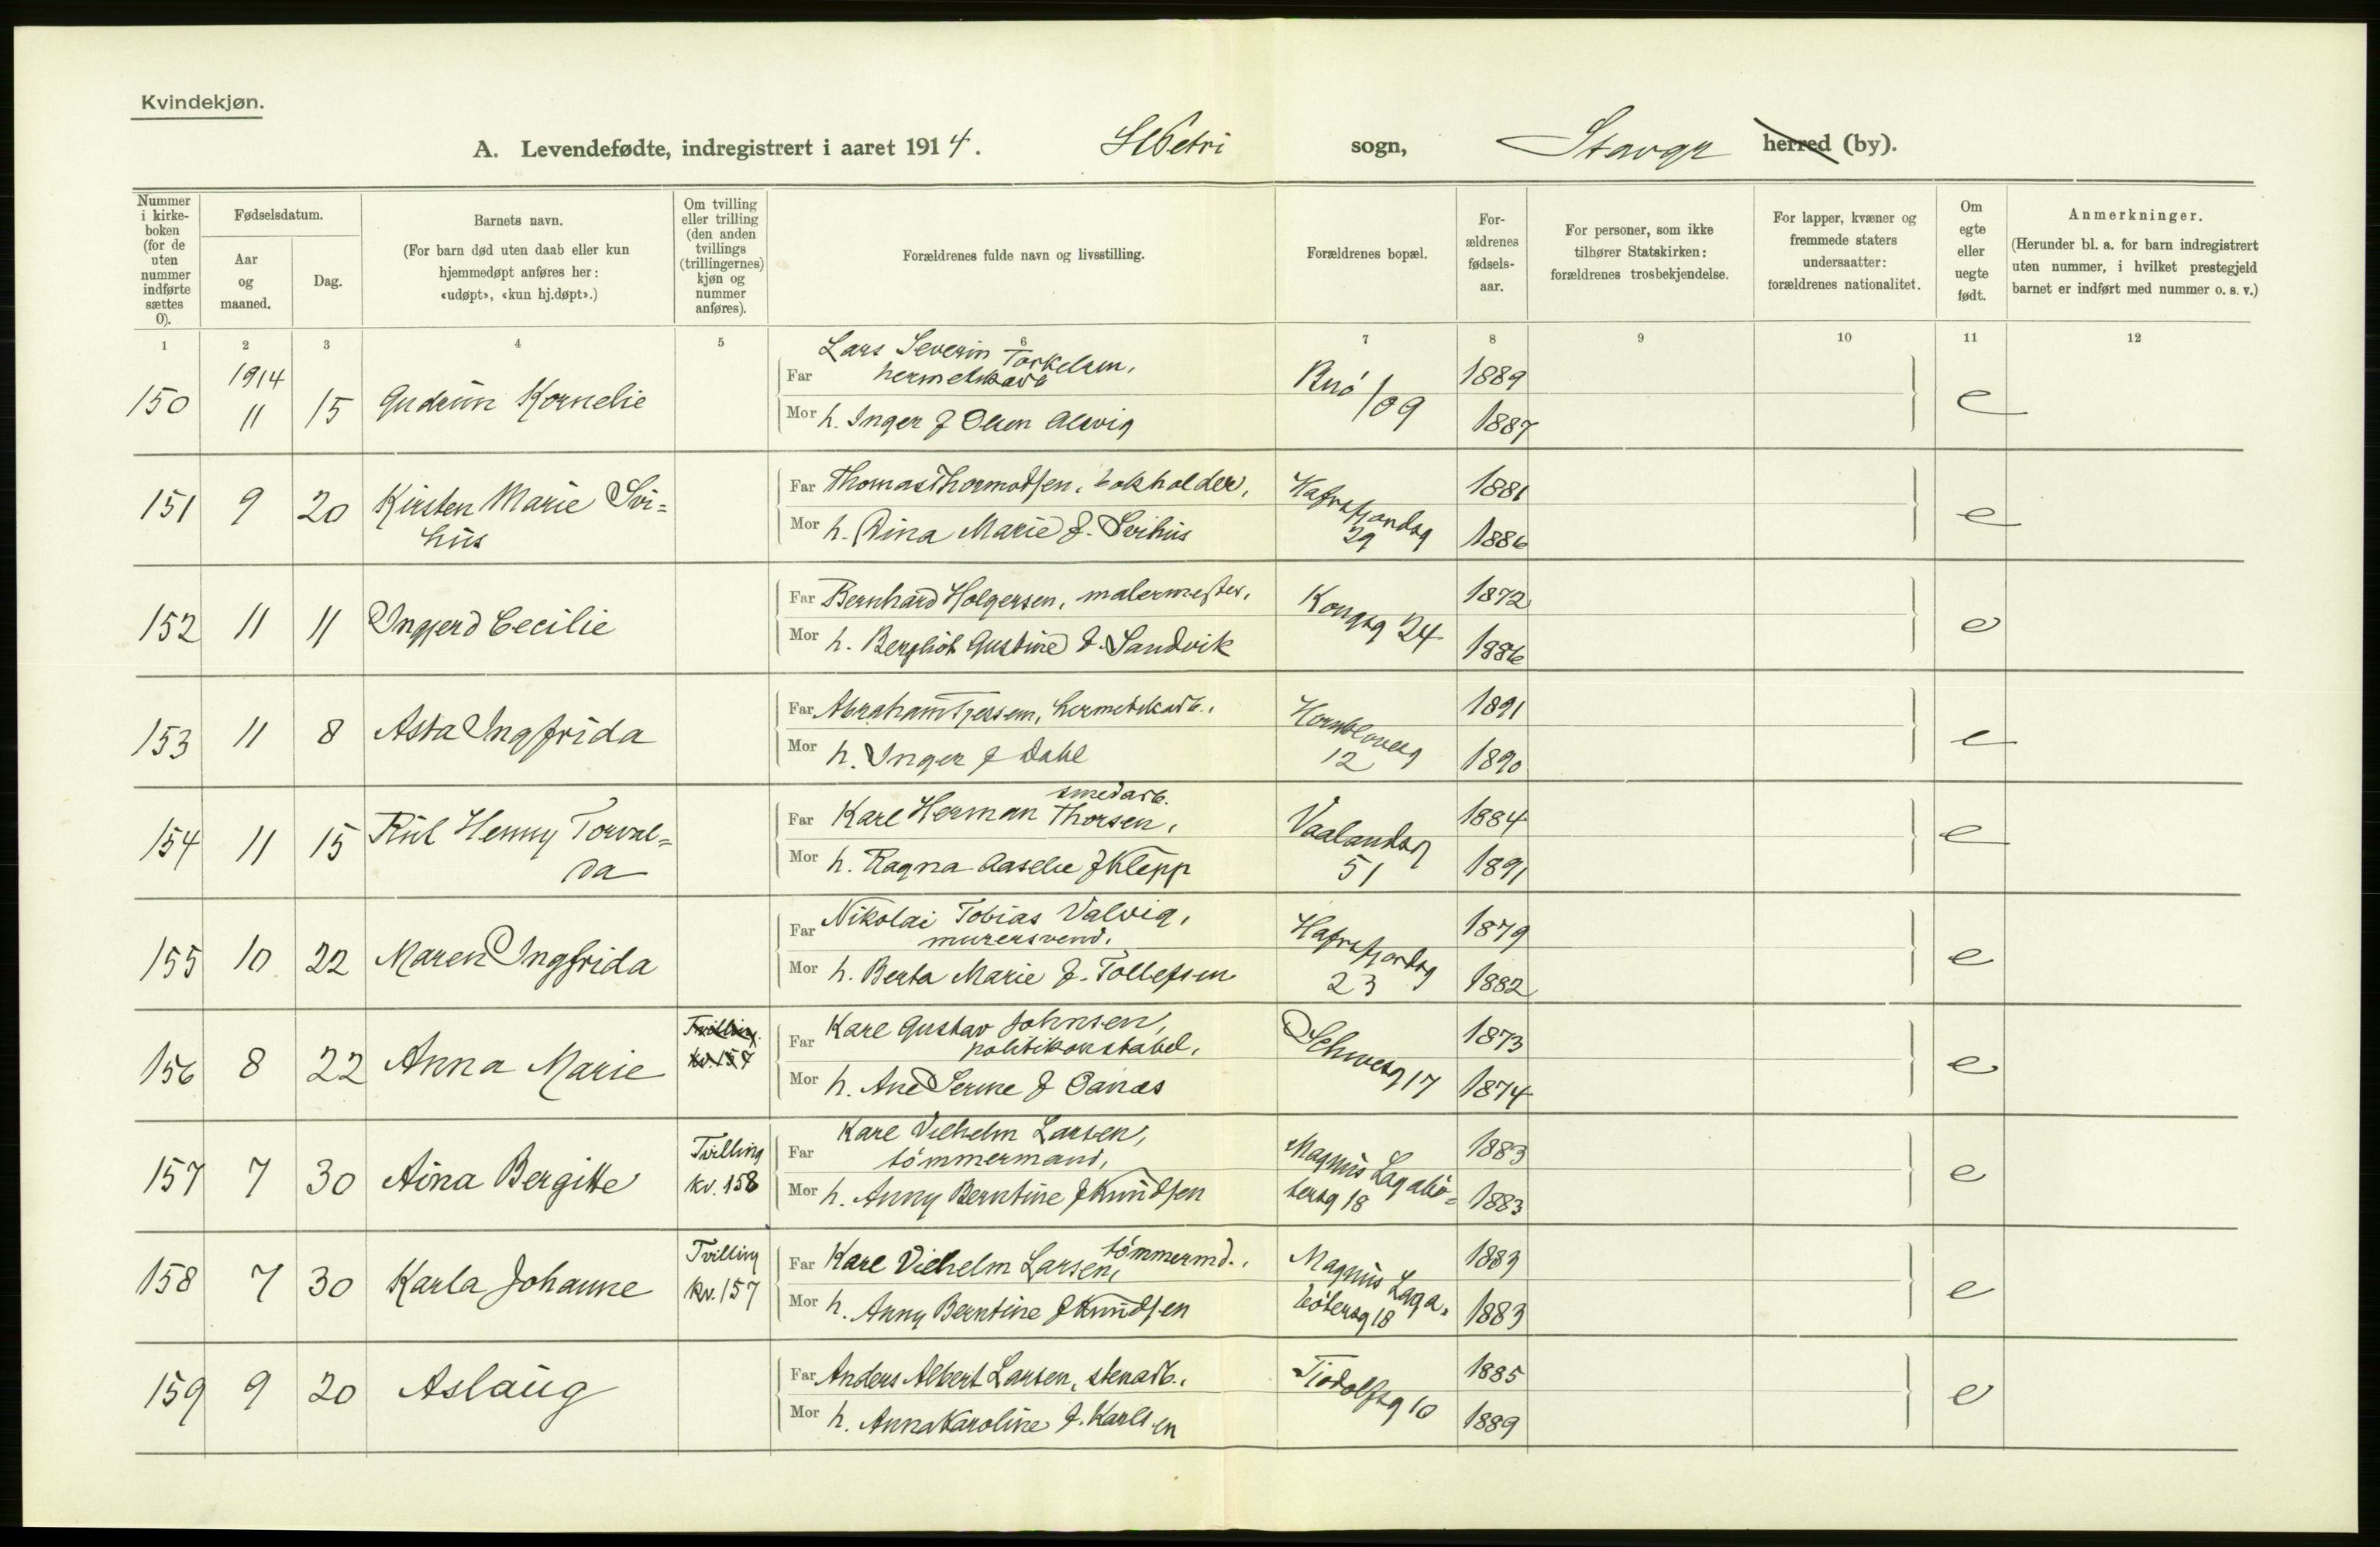 Kvindekjøn.
A. Levendefødte, indregistrert i aaret 1914. St Petri sogn, Stavgr herred (by).
Nummer i kirke- boken (for de uten nummer indførte sættes 0).
Fødselsdatum.
Aar og maaned.
Dag.
Barnets navn.
(For barn død uten daab eller kun hjemmedøpt anføres her: «udøpt», «kun hj.døpt».)
Om tvilling eller trilling (den anden tvillings (trillingernes) kjøn og nummer anføres).
Forældrenes fulde navn og livsstilling.
Forældrenes bopæl.
For- ældrenes fødsels- aar.
For personer, som ikke tilhører Statskirken: forældrenes trosbekjendelse.
For lapper, kvæner og fremmede staters undersaatter: forældrenes nationalitet.
Om egte eller uegte født.
Anmerkninger.
(Herunder bl. a. for barn indregistrert uten nummer, i hvilket prestegjeld barnet er indført med nummer o. s. v.)
1 2 3 4 5 6 7 8 9 10 11 12
1914
150 11 15 Gudrun Kornelie
Far Lars Severin Torkelsen, hermetikarb 1889
Mor h. Inger f Olsen 1887
109 e
151 9 20 Kirsten Marie Svi=
hus
Far Thomas Thormodsen, bokholder, 1881
Mor h. Rina Marie f. Svihus 1886
Hafrsfjordsg 29 e
152 11 11 Ingjerd Cecilie
Far Bernhard Holgersen, malermester, 1872
Mor h. Bergliot Gustine f. Sandvik 1886
Kongsg 24 e
153 11 8 Asta Ingfrida
Far Abraham Tjessem, hermetikarb., 1891
Mor h. Inger f Dahl 1890
12 e
154 11 15 Rut Henny Torval=
da
Far Karl Herman Thorsen, smedarb. 1884
Mor h. Ragna Aaselie f Klepp 1891
Vaalandsg 51 e
155 10 22 Maren Ingfrida
Far Nikolai Tobias Valvig, murersvend, 1879
Mor h. Berta Marie f. Tollefsen 1882
Hafrsfjordsg 23 e
156 8 22 Anna Marie Tvilling kv. 157
Far Karl Gustav Johnsen, politikonstabel, 1873
Mor h. Ane Serine f Oanæs 1874
Jelsaveg 17 e
157 7 30 Aina Bergitte Tvilling kv. 158
Far Karl Vilhelm Larsen, tömmermand, 1883
Mor h. Anny Berntine f Knudsen 1883
Magnus Lagabö=
tersg 18 e
158 7 30 Karla Johanne Tvilling kv. 157
Far Karl Vilhelm Larsen, tömmermd., 1883
Mor h. Anny Berntine f Knudsen 1883
Magnus Laga=
bötersg 18 e
159 9 20 Aslaug
Far Anders Albert Larsen, stenarb., 1885
Mor h. Anna Karoline f. Karlsen 1889
Tjodolfsg 10 e